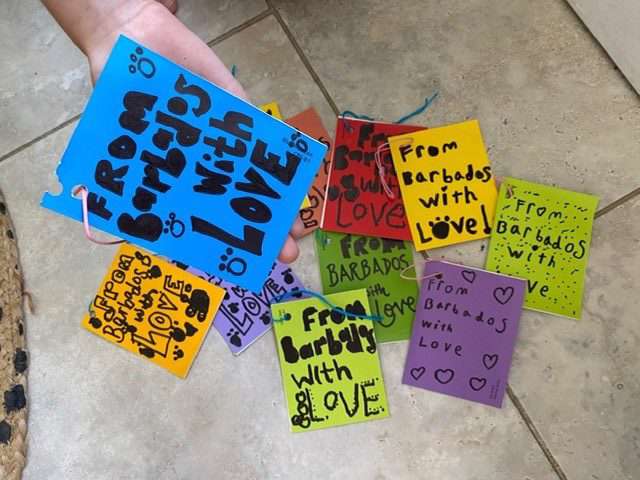 From
Barbados
with
LOVE
From
Barbados
with
LOVE
From
Barbados
with
LOVE!
From
Barbados
with
ve
FROM
BARBADOS
with
Love
From
Barbados
with
Love
From
Barbados
with
LOVE
From
Barbados
with
LOVE
LOVE